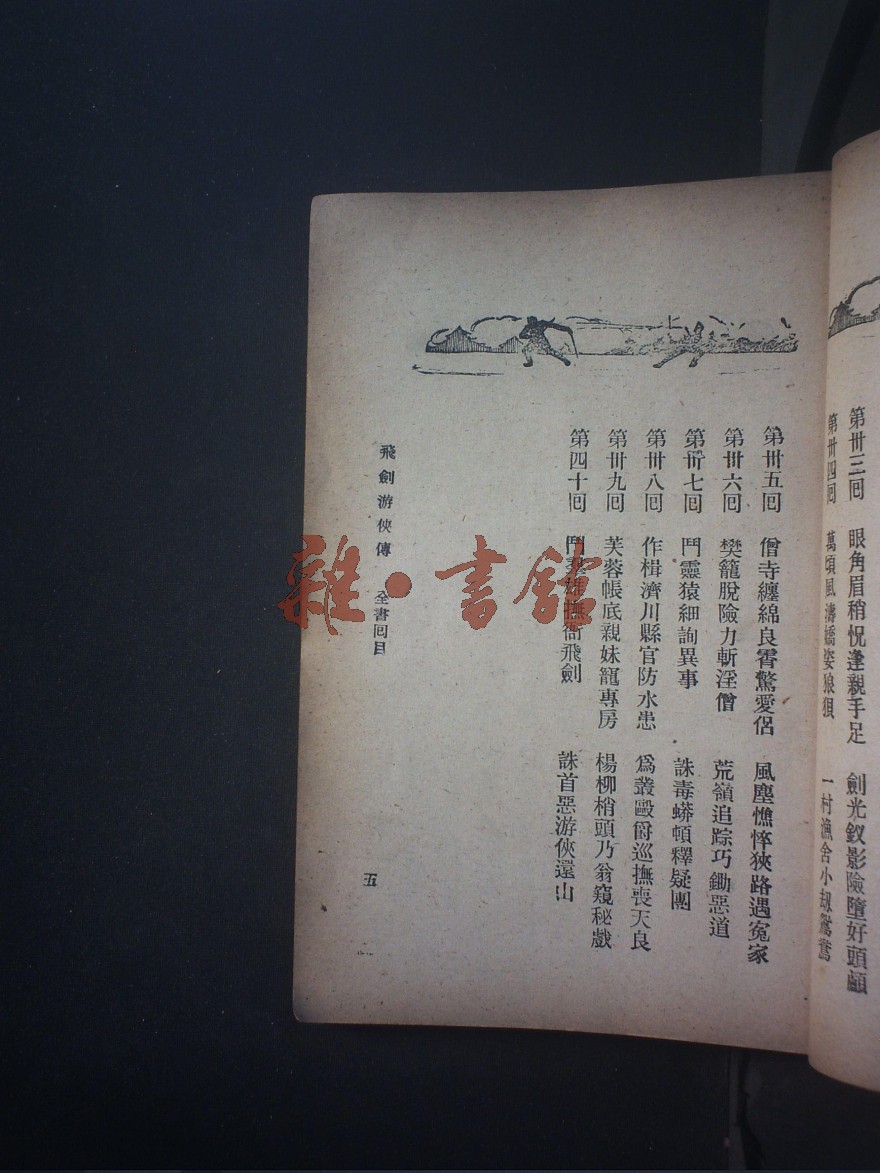 第卅三回 眼角眉稍怳逢親手足 劍光釵影險墮好頭顱
第卅四回 萬頃風濤嬌姿狼狽 一村漁舍小刼鴛鴦
第卅五回 僧寺纏綿良霄驚愛侶 風塵憔悴狹路遇冤家
第卅六回 樊籠脫險力斬淫僧 荒嶺追踪巧鋤惡道
第卅七回 鬥靈猿細詢異事 誅毒蟒頓釋疑團
第卅八回 作楫濟川縣官防水患 爲叢毆爵巡撫喪天良
第卅九回 芙蓉帳底親妹寵專房 楊柳梢頭乃翁窺秘戲
第四十回 鬥羣雄撫衙飛劍 誅首惡游俠還山
飛劍游俠傳 全書回目
五
雜·書館